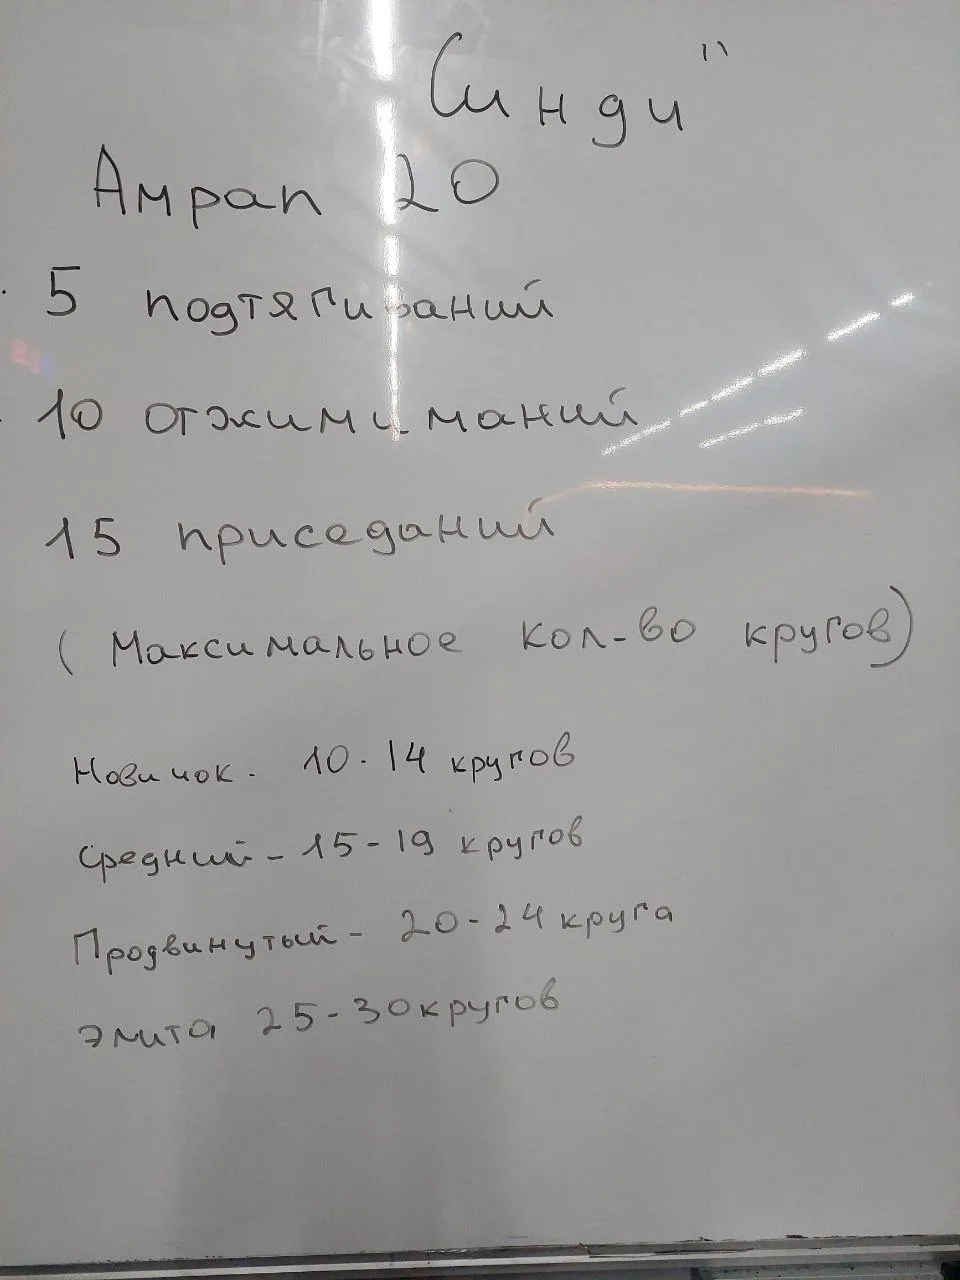 Синди"
Амрап 20
5 подтягиваний
10 отжимиманий
15 приседаний
(Максимальное кол-во кругов)
Новичок. 10-14 кругов
Средний - 15-19 кругов
Продвинутый - 20-24 круга
Элита 25-30 кругов